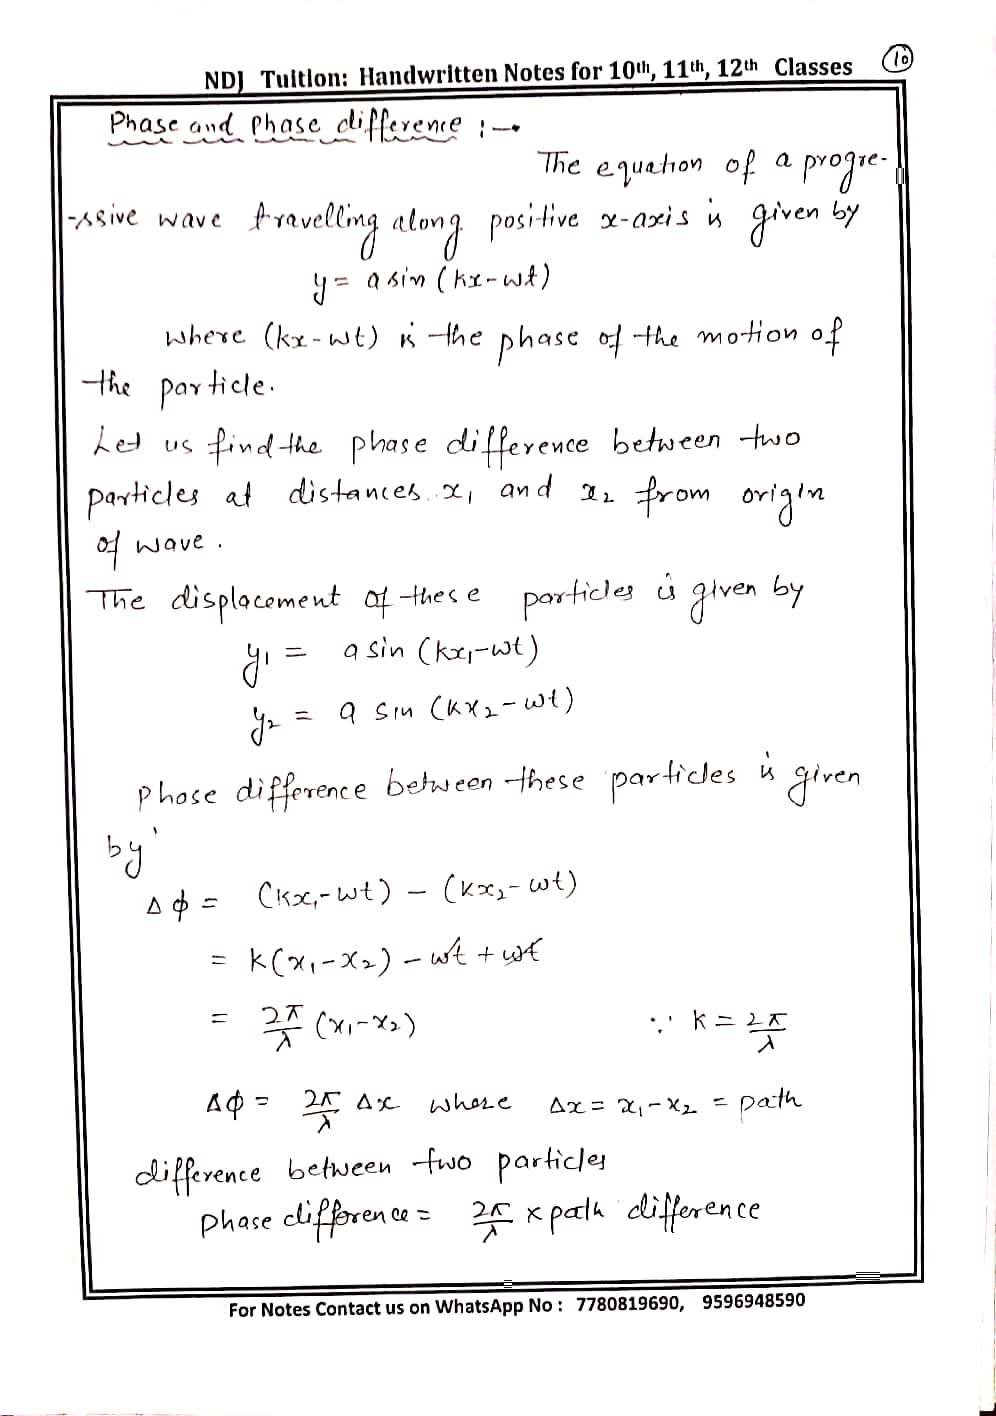 10
NDJ Tuition: Handwritten Notes for 10th, 11th, 12th Classes
Phase and Phase difference :-
The equation of a progre-
-ssive wave travelling along positive x-axis is given by
y = a sin (kx-wt)
where (kx-wt) is the phase of the motion of
the particle.
Let us find the phase difference between two
particles at distances x₁ and x₂ from origin
of wave.
The displacement of these particles is given by
y₁ = a sin (kx₁-wt)
y₂ = a sin (kx₂-wt)
Phase difference between these particles is given
by
Δϕ = (kx₁-wt) - (kx₂-wt)
= k(x₁-x₂) - wt + wt
= 2π/λ (x₁-x₂) ∵ k = 2π/λ
Δϕ = 2π/λ Δx where Δx = x₁-x₂ = path
difference between two particles
Phase difference = 2π/λ x path difference
For Notes Contact us on WhatsApp No : 7780819690, 9596948590